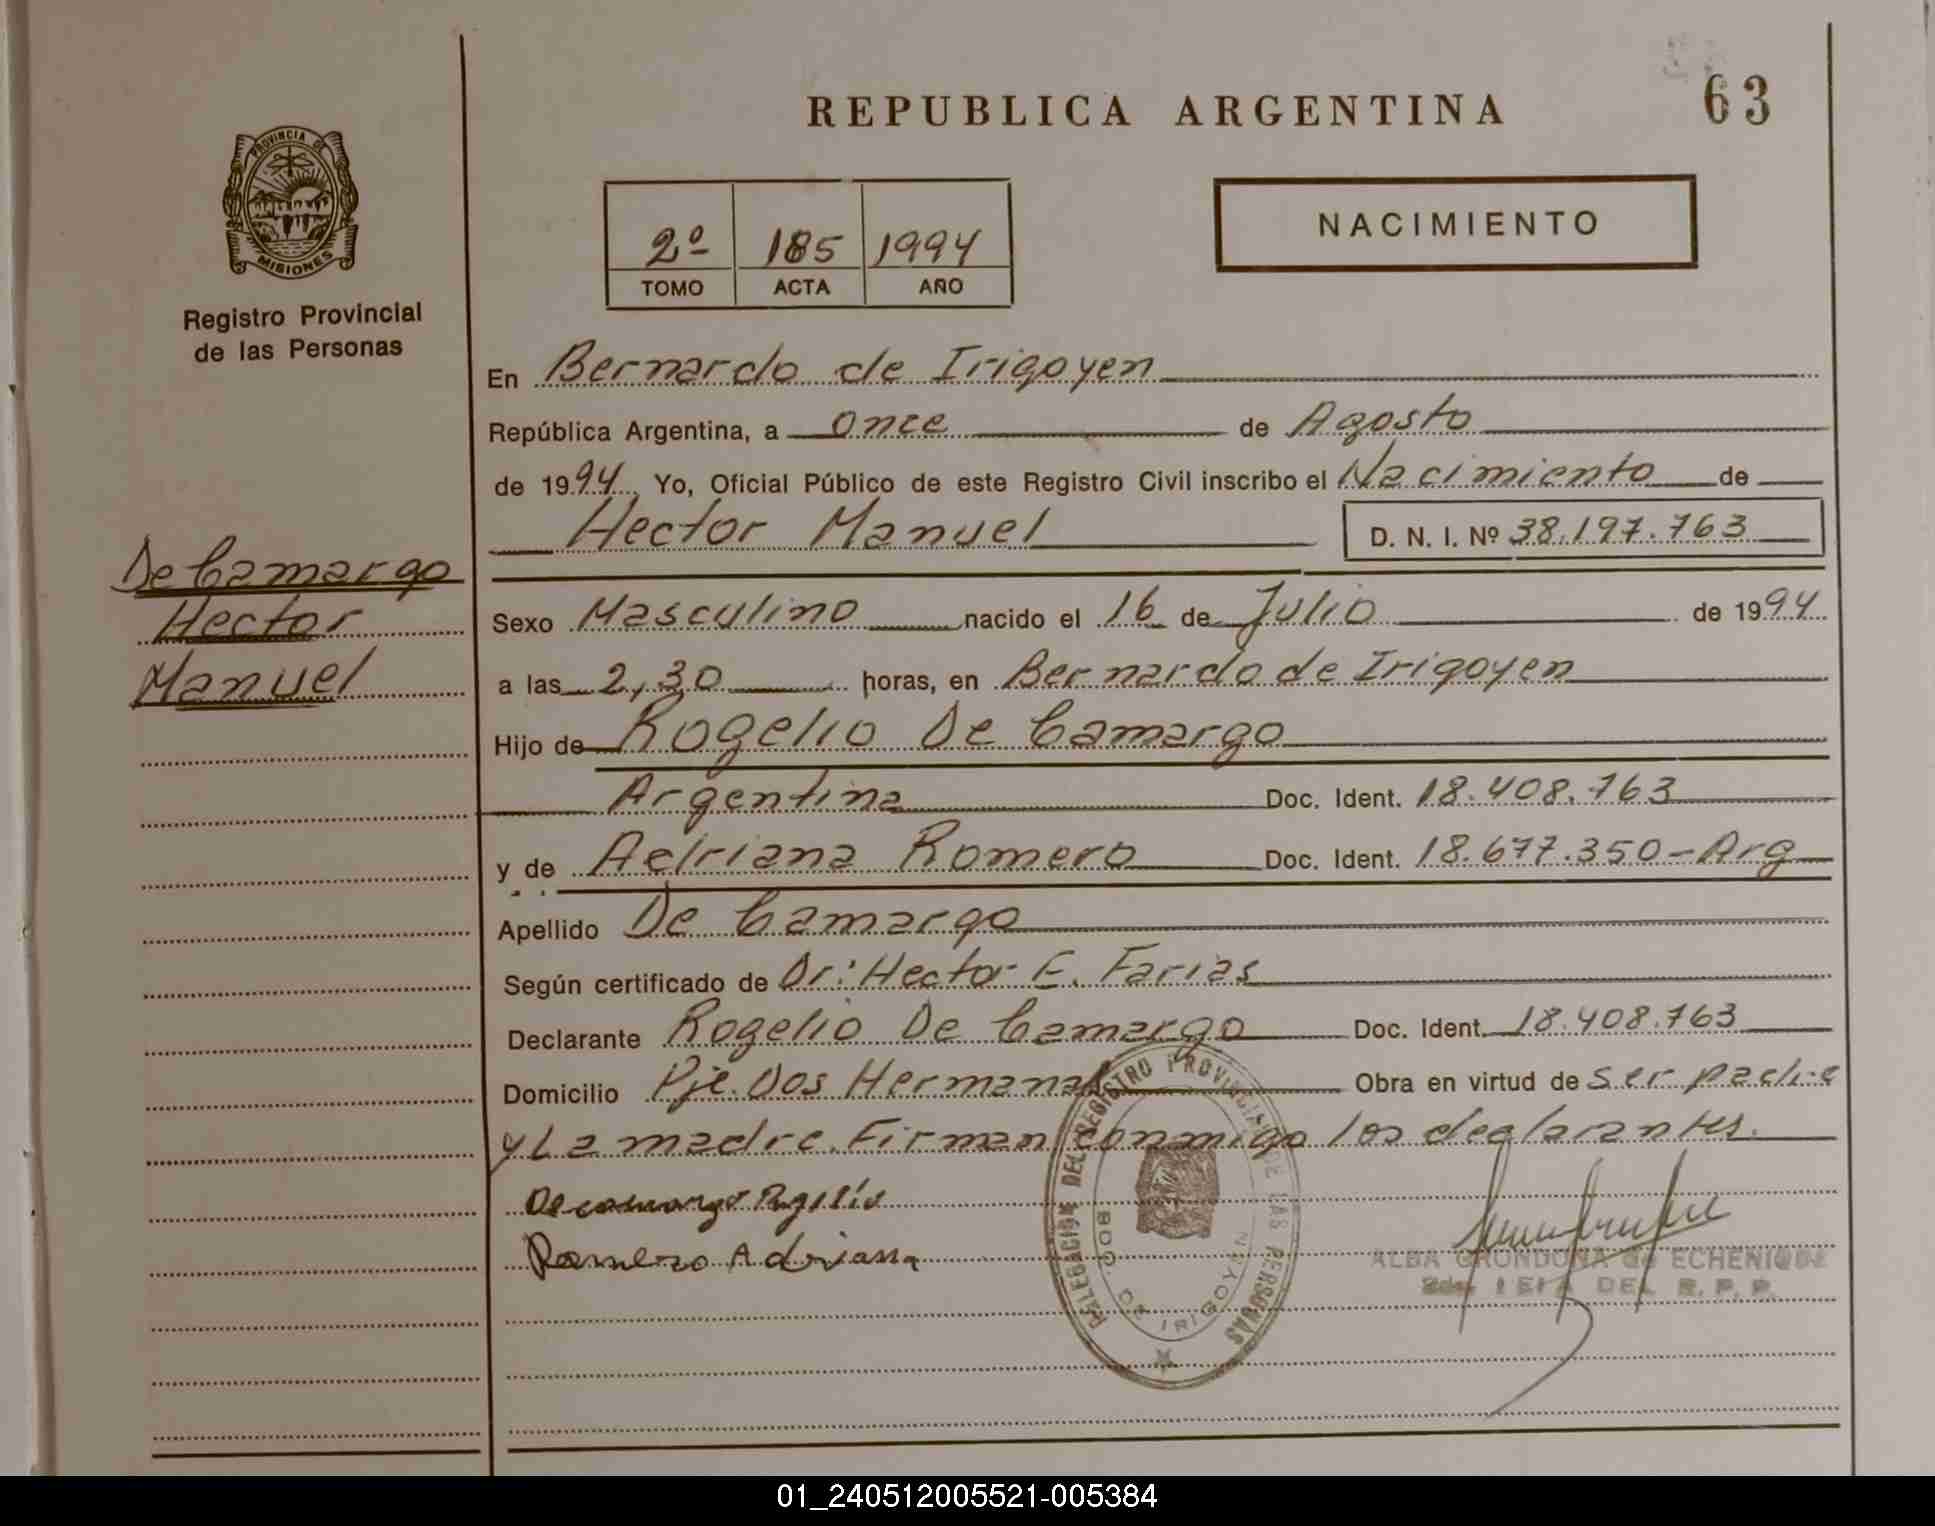 REPUBLICA ARGENTINA
63
PROVINCIA DE
MISIONES
Registro Provincial
de las Personas
2º 185 1994
TOMO ACTA AÑO
NACIMIENTO
En Bernardo de Irigoyen
República Argentina, a once de Agosto
de 1994 Yo, Oficial Público de este Registro Civil inscribo el Nacimiento de
Hector Manuel D. N. I. Nº 38.197.763
De Camargo
Hector
Manuel
Sexo Masculino nacido el 16 de Julio de 1994
a las 2,30 horas, en Bernardo de Irigoyen
Hijo de Rogelio De Camargo
Argentina Doc. Ident. 18.408.763
y de Adriana Romero Doc. Ident. 18.677.350-Arg
Apellido De Camargo
Según certificado de Dr: Hector E. Farias
Declarante Rogelio De Camargo Doc. Ident. 18.408.763
Domicilio Pje. Dos Hermanas Obra en virtud de ser padre
y La madre. Firman conmigo los declarantes.
De camargo Rogelio
Romero Adriana
DELEGACION DEL REGISTRO PROVINCIAL DE LAS PERSONAS
BDO. DE IRIGOYEN
ALBA GRONDONA de ECHENIQUE
DEL R. P. P.
01_240512005521-005384